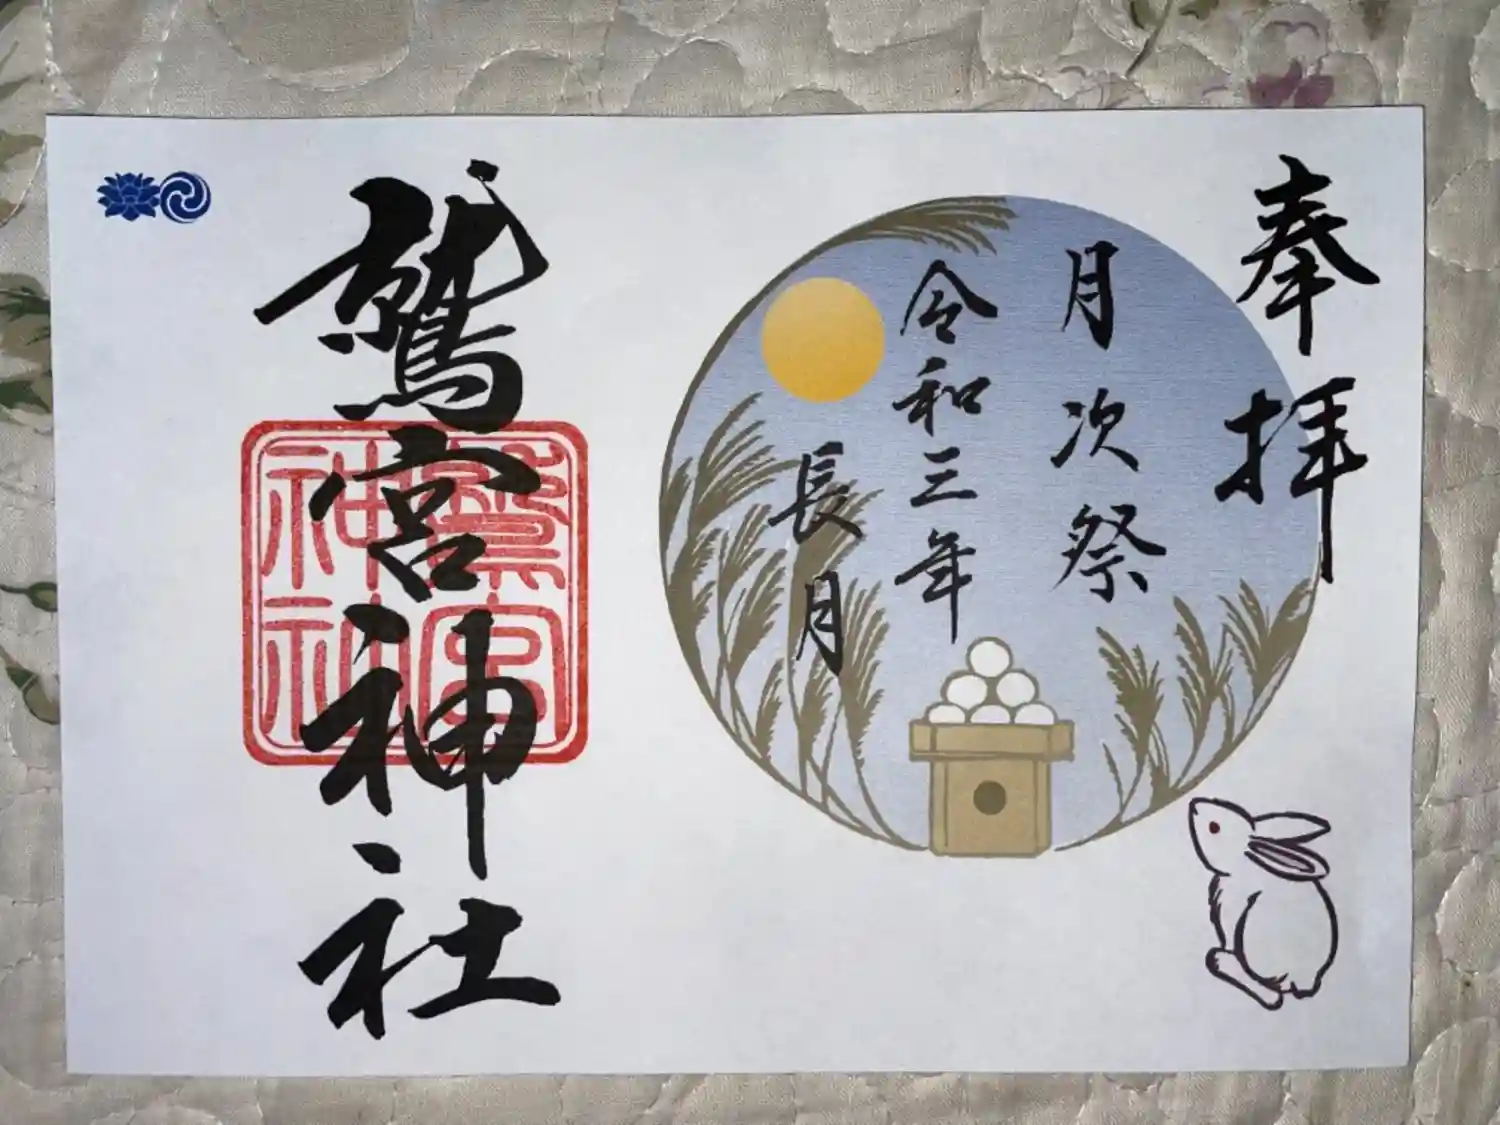 奉拝
月次祭
令和三年
長月
鷲宮神社
鷲宮
神社